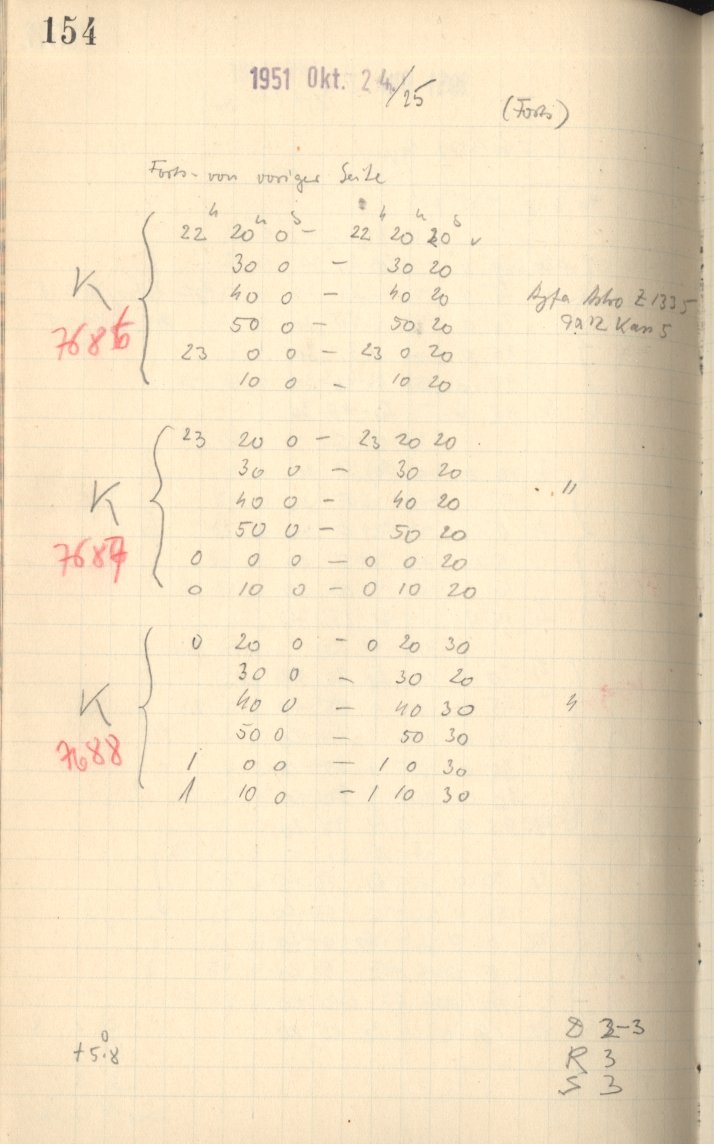 154
1951 Okt. 24/25
(Forts)
Forts. von voriger Seite
22h 20m 0s - 22h 20m 20s
30 0 - 30 20
K 40 0 - 40 20 Agfa Astro Z 1335
7686 50 0 - 50 20 9x12 Kass 5
23 0 0 - 23 0 20
10 0 - 10 20
23 20 0 - 23 20 20
30 0 - 30 20
K 40 0 - 40 20 "
7687 50 0 - 50 20
0 0 0 - 0 0 20
0 10 0 - 0 10 20
0 20 0 - 0 20 30
30 0 - 30 20
K 40 0 - 40 30 "
7688 50 0 - 50 30
1 0 0 - 1 0 30
1 10 0 - 1 10 30
+5°.8
D 2-3
R 3
S 3